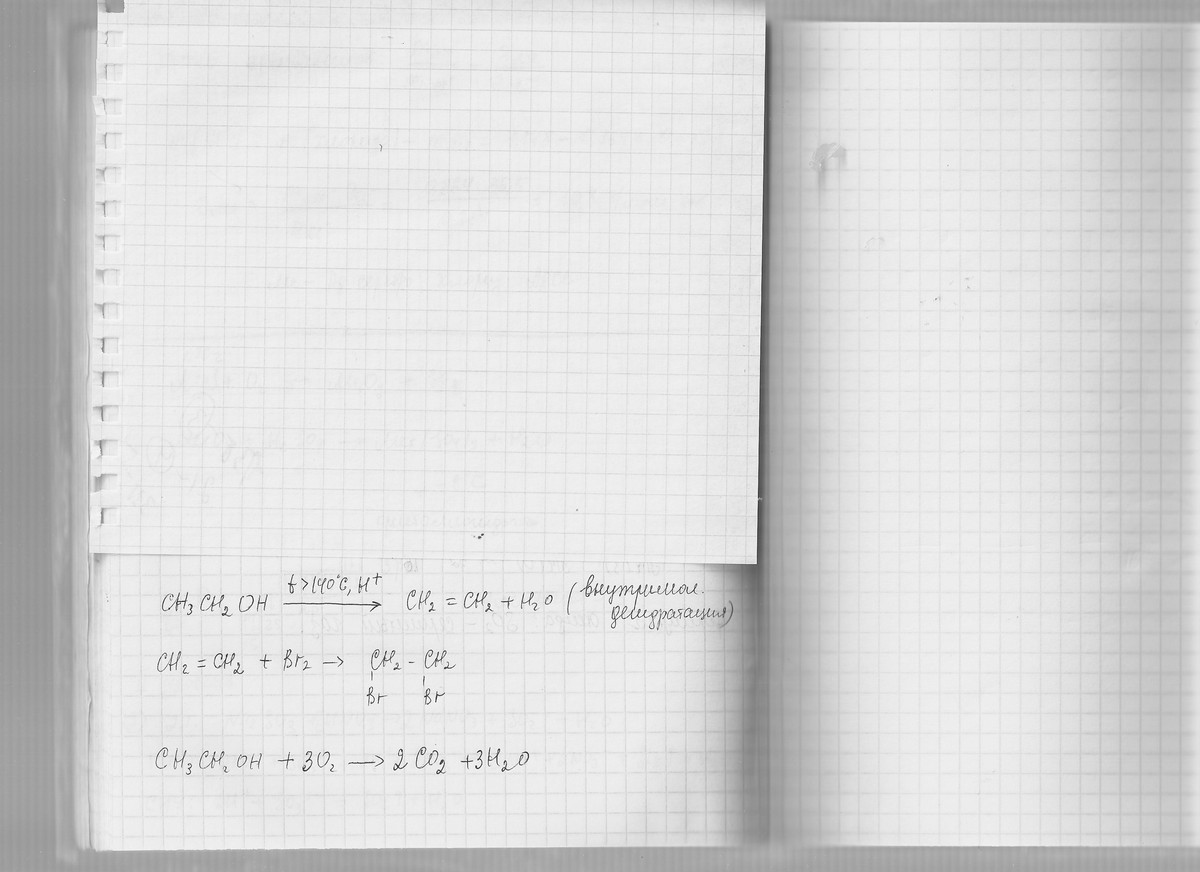 CH₃CH₂OH t>140°C, H⁺ → CH₂=CH₂ + H₂O (внутримол.
дегидратация)
CH₂=CH₂ + Br₂ → CH₂-CH₂
Br Br
CH₃CH₂OH + 3O₂ → 2CO₂ + 3H₂O